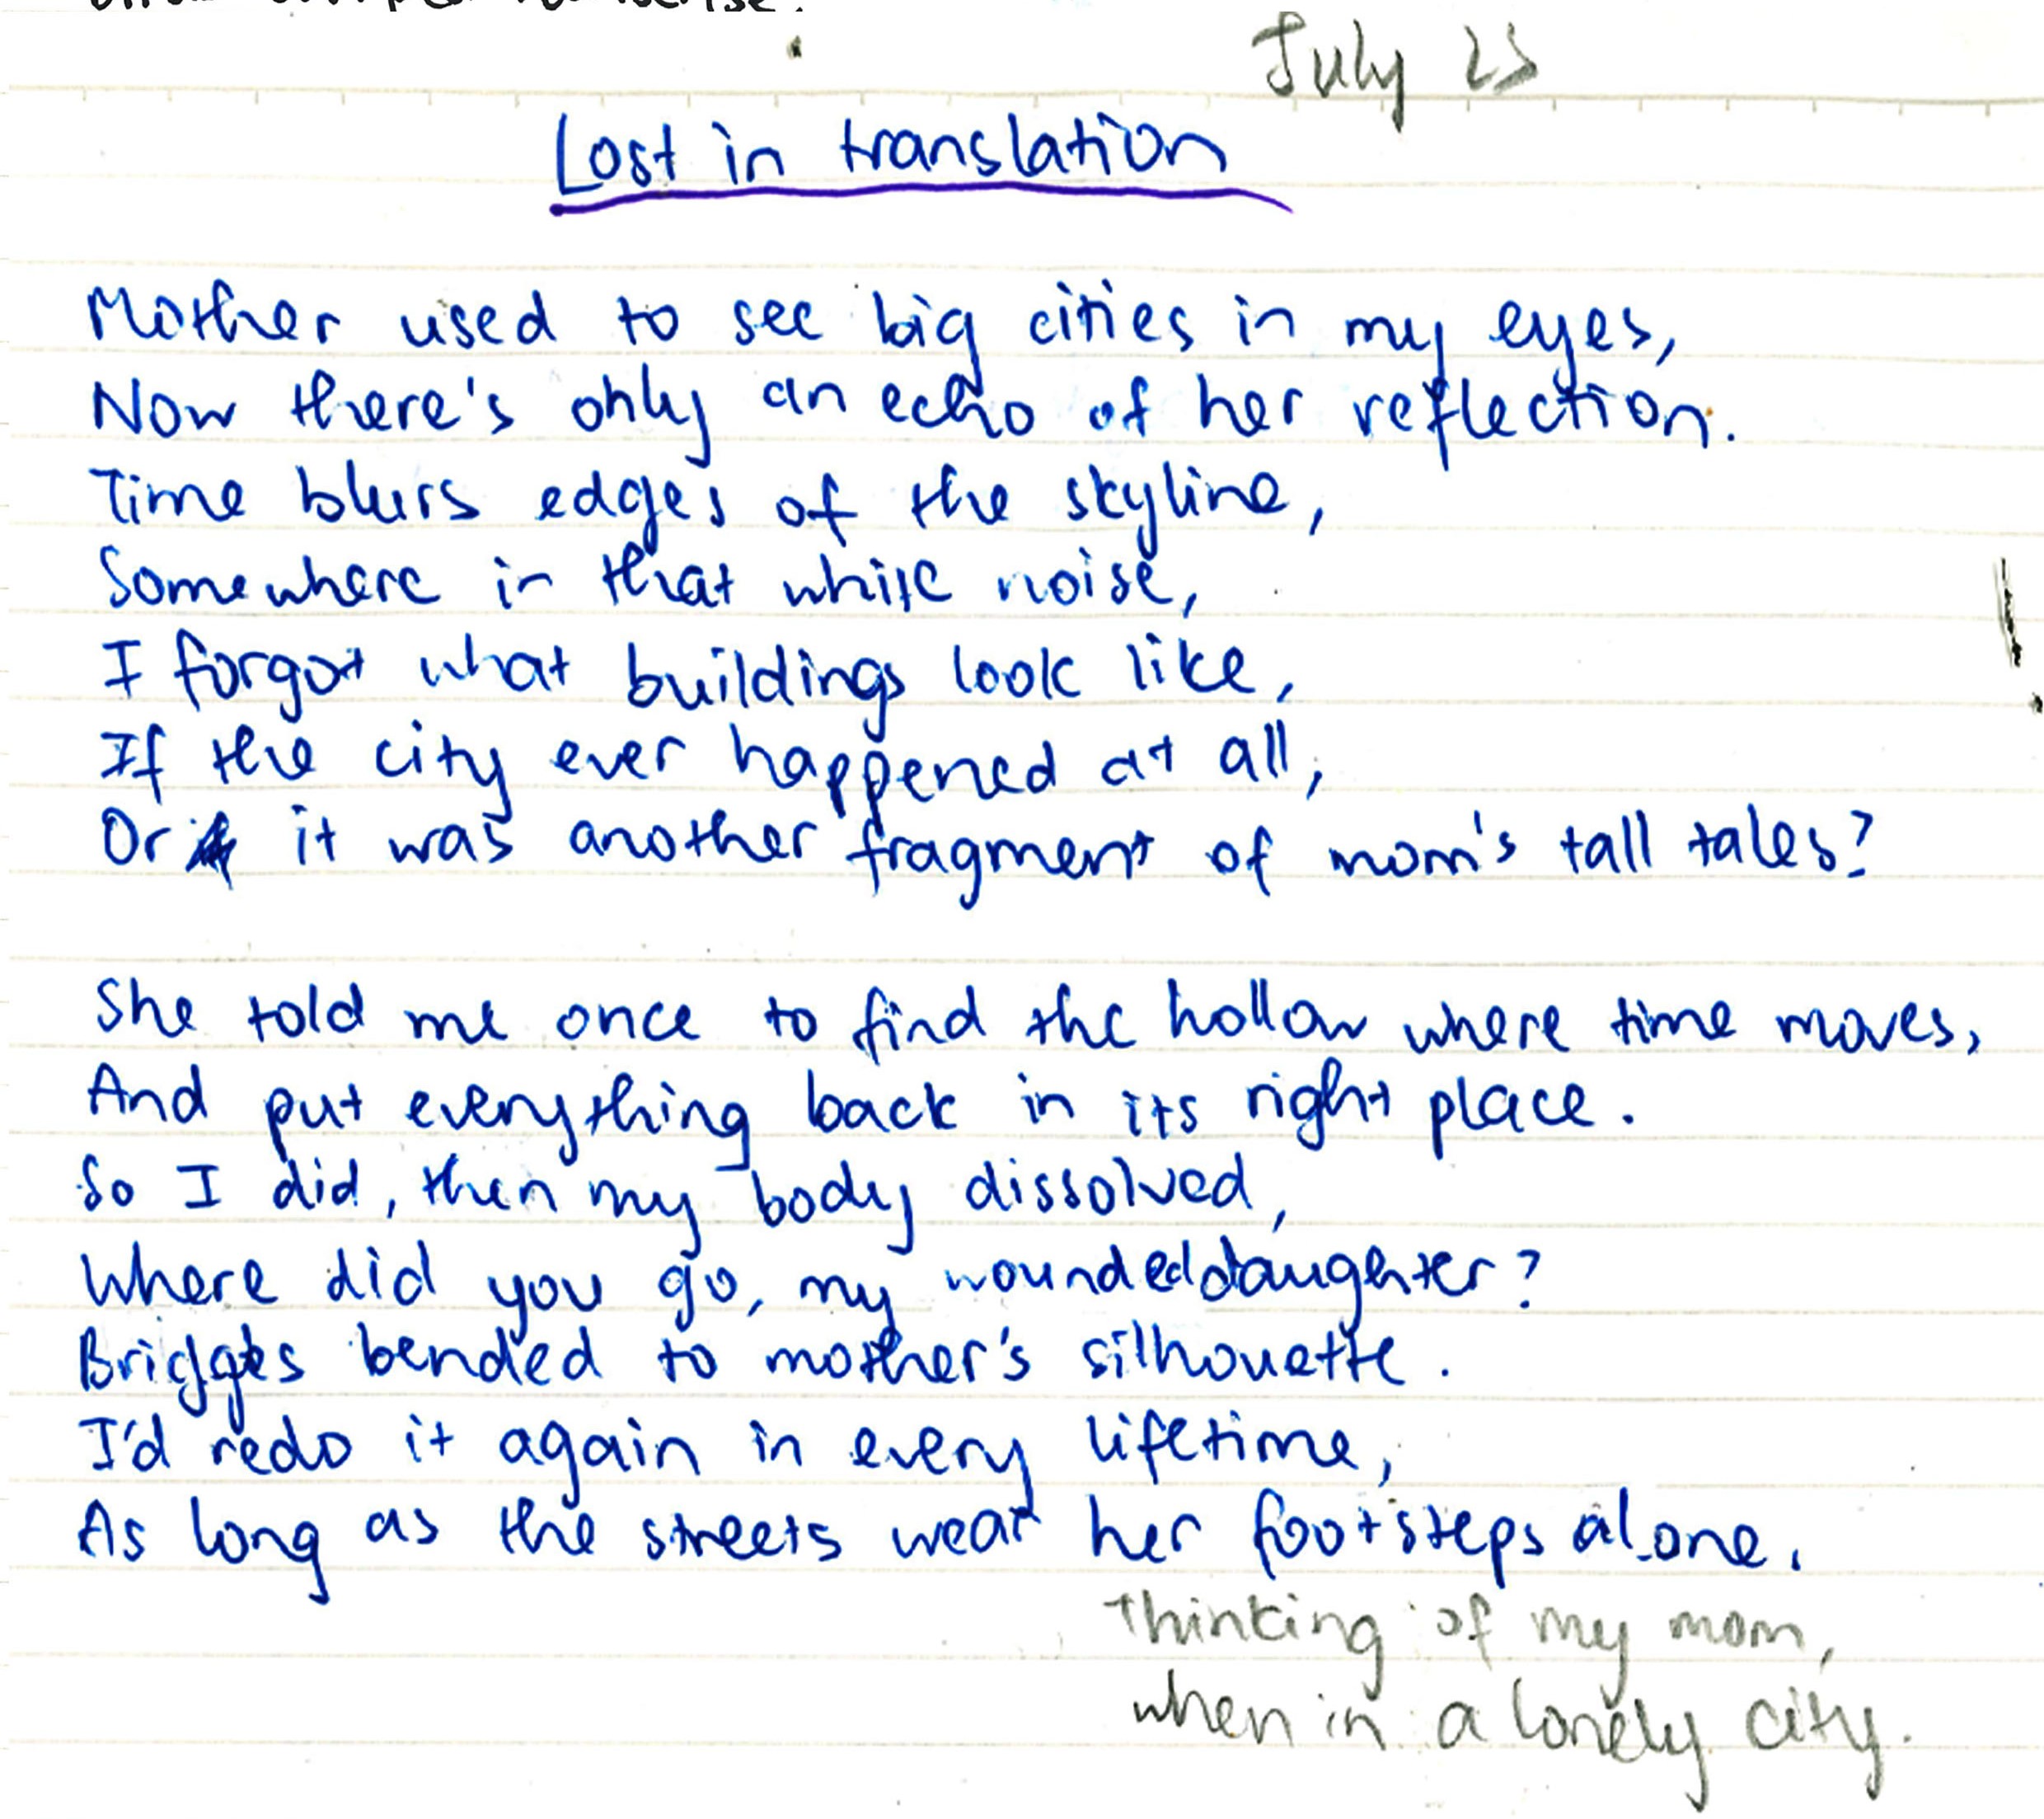 July 23
Lost in translation
Mother used to see big cities in my eyes,
Now there's only an echo of her reflection.
Time blurs edges of the skyline,
Somewhere in that white noise,
I forgot what buildings look like,
If the city ever happened at all,
Or it was another fragment of mom's tall tales?
She told me once to find the hollow where time moves,
And put everything back in its right place.
So I did, then my body dissolved,
Where did you go, my wounded daughter?
Bridges bended to mother's silhouette.
I'd redo it again in every lifetime,
As long as the streets wear her footsteps alone.
Thinking of my mom,
when in a lonely city.